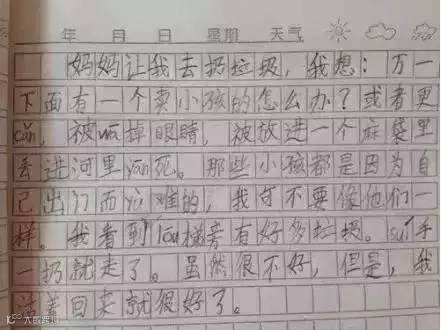 年 月 日 星期 天气
妈妈让我去扔垃圾，我想：万一
下面有一个卖小孩的怎么办？或者更
cǎn，被wā掉眼睛，被放进一个麻袋里
丢进河里yān死。那些小孩都是因为自
己出门而 难的，我可不要像他们一
样。我看到lóu梯旁有好多垃圾。suí手
一扔就走了。虽然很不好，但是，我
活着回来就很好了。
大皖